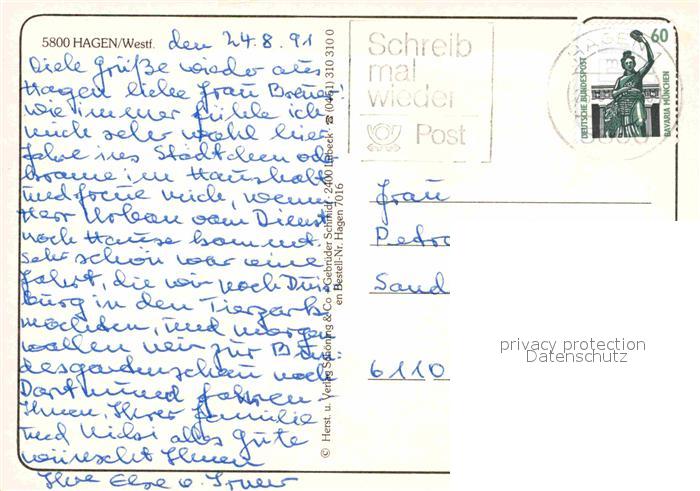 5800 HAGEN/Westf. den 24.8.91
Viele Grüße wieder aus
Hagen liebe Frau
wie immer fühle ich
mich sehr wohl hier
fahre ins Städtchen od.
krame im Haushalt
und freue mich, wenn
Herr Urban vom Dienst
nach Hause kommt.
sehr schön war eine
Fahrt, die wir nach Duis
burg in den Tierpark
machten, und morgen
wollen wir zur Bun=
desgartenschau nach
Dortmund fahren.
Ihnen, Ihrer Familie
und alles Gute
wünscht Ihnen
Ihre Else
© Herst. u. Verlag Schöning & Co + Gebrüder Schmidt · 2400 Lübeck · ☎ (0451) 310 310 0
en Bestell-Nr. Hagen 7016
Schreib
mal
wieder
Post
HAGEN
5800
60
DEUTSCHE BUNDESPOST
BAVARIA MÜNCHEN
Frau
Petr
Sand
6110
privacy protection
Datenschutz